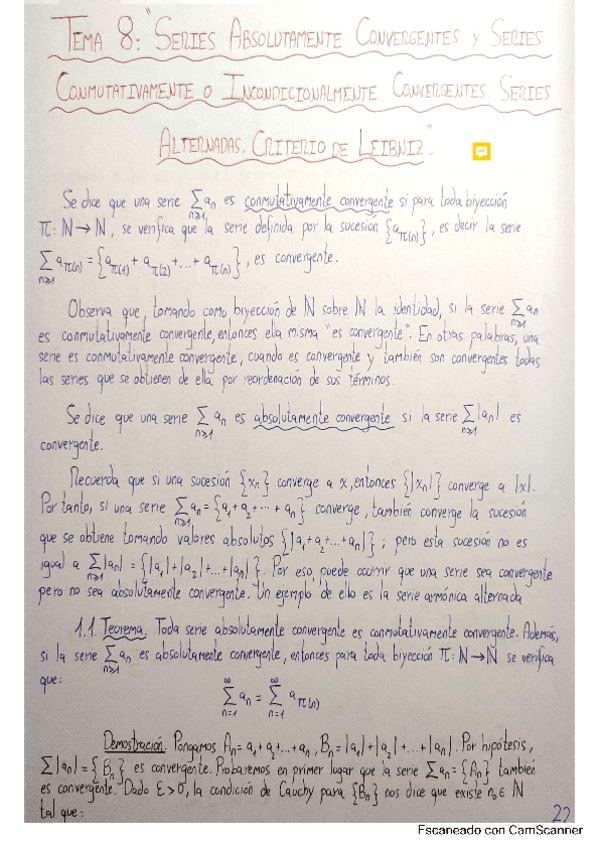 TEMA 8: "SERIES ABSOLUTAMENTE CONVERGENTES Y SERIES
CONMUTATIVAMENTE O INCONDICIONALMENTE CONVERGENTES. SERIES
ALTERNADAS. CRITERIO DE LEIBNIZ".
Se dice que una serie ∑_{n≥1} aₙ es conmutativamente convergente si para toda biyección
π: ℕ→ℕ, se verifica que la serie definida por la sucesión {a_{π(n)}}, es decir la serie
∑_{n≥1} a_{π(n)} = {a_{π(1)} + a_{π(2)} + ... + a_{π(n)}}, es convergente.
Observa que, tomando como biyección de ℕ sobre ℕ la identidad, si la serie ∑_{n≥1} aₙ
es conmutativamente convergente, entonces ella misma "es convergente". En otras palabras, una
serie es conmutativamente convergente, cuando es convergente y también son convergentes todas
las series que se obtienen de ella por reordenación de sus términos.
Se dice que una serie ∑_{n≥1} aₙ es absolutamente convergente si la serie ∑_{n≥1} |aₙ| es
convergente.
Recuerda que si una sucesión {xₙ} converge a x, entonces {|xₙ|} converge a |x|.
Por tanto, si una serie ∑_{n≥1} aₙ = {a₁ + a₂ + ... + aₙ} converge, también converge la sucesión
que se obtiene tomando valores absolutos {|a₁ + a₂ + ... + aₙ|}; pero esta sucesión no es
igual a ∑_{n≥1} |aₙ| = {|a₁| + |a₂| + ... + |aₙ|}. Por eso, puede ocurrir que una serie sea convergente
pero no sea absolutamente convergente. Un ejemplo de ello es la serie armónica alternada
1.1. Teorema. Toda serie absolutamente convergente es conmutativamente convergente. Además,
si la serie ∑_{n≥1} aₙ es absolutamente convergente, entonces para toda biyección π: ℕ→ℕ se verifica
que:
∑_{n=1}^{∞} aₙ = ∑_{n=1}^{∞} a_{π(n)}
Demostración. Pongamos Aₙ = a₁ + a₂ + ... + aₙ, Bₙ = |a₁| + |a₂| + ... + |aₙ|. Por hipótesis,
∑|aₙ| = {Bₙ} es convergente. Probaremos en primer lugar que la serie ∑aₙ = {Aₙ} también
es convergente. Dado ε>0, la condición de Cauchy para {Bₙ} nos dice que existe n₀ ∈ ℕ
tal que:
22
Escaneado con CamScanner